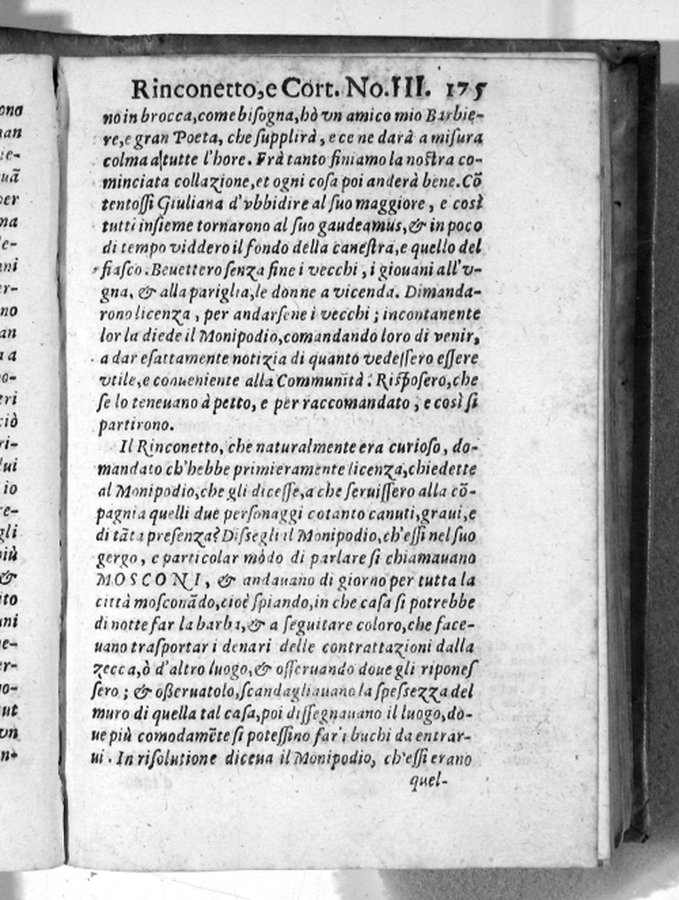 ono
Rinconetto, e Cort. No. III. 175
no in brocca, come biſogna, hò vn amico mio Barbie-
re, e gran Poeta, che ſupplirà, e ce ne darà a miſura
colma a tutte l'hore. Frà tanto finiamo la noſtra co-
minciata collazione, et ogni coſa poi anderà bene. Cõ
tentoſſi Giuliana d'vbbidire al ſuo maggiore, e così
tutti inſieme tornarono al ſuo gaudeamus, & in poco
di tempo viddero il fondo della caneſtra, e quello del
fiaſco. Beuettero ſenza fine i vecchi, i giouani all'v-
gna, & alla pariglia, le donne a vicenda. Dimanda-
rono licenza, per andarſene i vecchi; incontanente
lor la diede il Monipodio, comandando loro di venir,
a dar eſattamente notizia di quanto vedeſſero eſſere
vtile, e conueniente alla Communità. Riſpoſero, che
ſe lo teneuano à petto, e per raccomandato, e così ſi
partirono.
Il Rinconetto, che naturalmente era curioſo, do-
mandato ch'hebbe primieramente licenza, chiedette
al Monipodio, che gli diceſſe, a che ſeruiſſero alla cõ-
pagnia quelli due perſonaggi cotanto canuti, graui, e
di tãta preſenza? Diſſegli il Monipodio, ch'eſſi nel ſuo
gergo, e particolar modo di parlare ſi chiamauano
MOSCONI, & andauano di giorno per tutta la
città moſconãdo, cioè ſpiando, in che caſa ſi potrebbe
di notte far la barba, & a ſeguitare coloro, che face-
uano traſportar i denari delle contrattazioni dalla
zecca, ò d'altro luogo, & oſſeruando doue gli riponeſ
ſero; & oßeruatolo, ſcandagliauano la ſpeſſezza del
muro di quella tal caſa, poi diſſegnauano il luogo, do-
ue più comodamẽte ſi poteſſino far i buchi da entrar-
ui. In riſolutione diceua il Monipodio, ch'eſſi erano
quel-